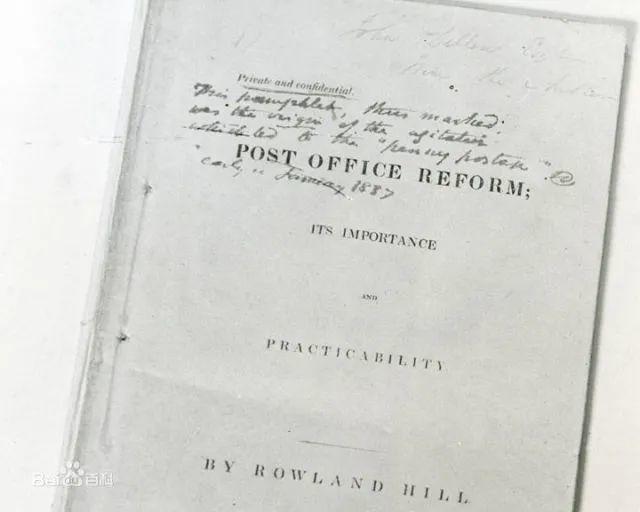 John
Private and confidential.
This pamphlet, thus marked,
was the origin of the agitation
which led to the "penny postage".
POST OFFICE REFORM;
"early" January 1837
ITS IMPORTANCE
AND
PRACTICABILITY
BY ROWLAND HILL
Bai百科